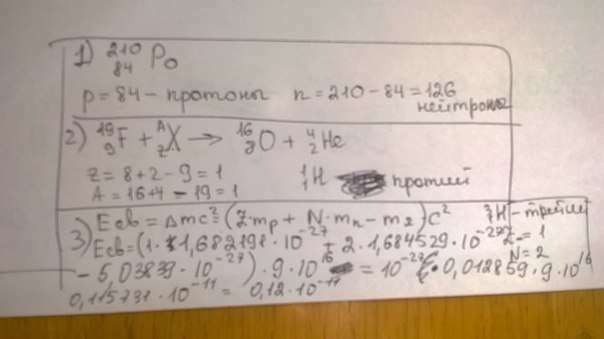 1) ²¹⁰₈₄Po
p = 84 - протоны n = 210 - 84 = 126
нейтроны
2) ¹⁹₉F + ᴬ_Z X → ¹⁶₈O + ⁴₂He
Z = 8 + 2 - 9 = 1 ¹₁H протий
A = 16 + 4 - 19 = 1
3) Eсв = Δmc² = (Z·mp + N·mn - mя)c² ³₁H - тритий
Eсв = (1·1,682191·10⁻²⁷ + 2·1,684529·10⁻²⁷ Z = 1
N = 2
- 5,03839·10⁻²⁷)·9·10¹⁶ = 10⁻²⁷·0,012859·9·10¹⁶
0,115731·10⁻¹¹ = 0,12·10⁻¹¹